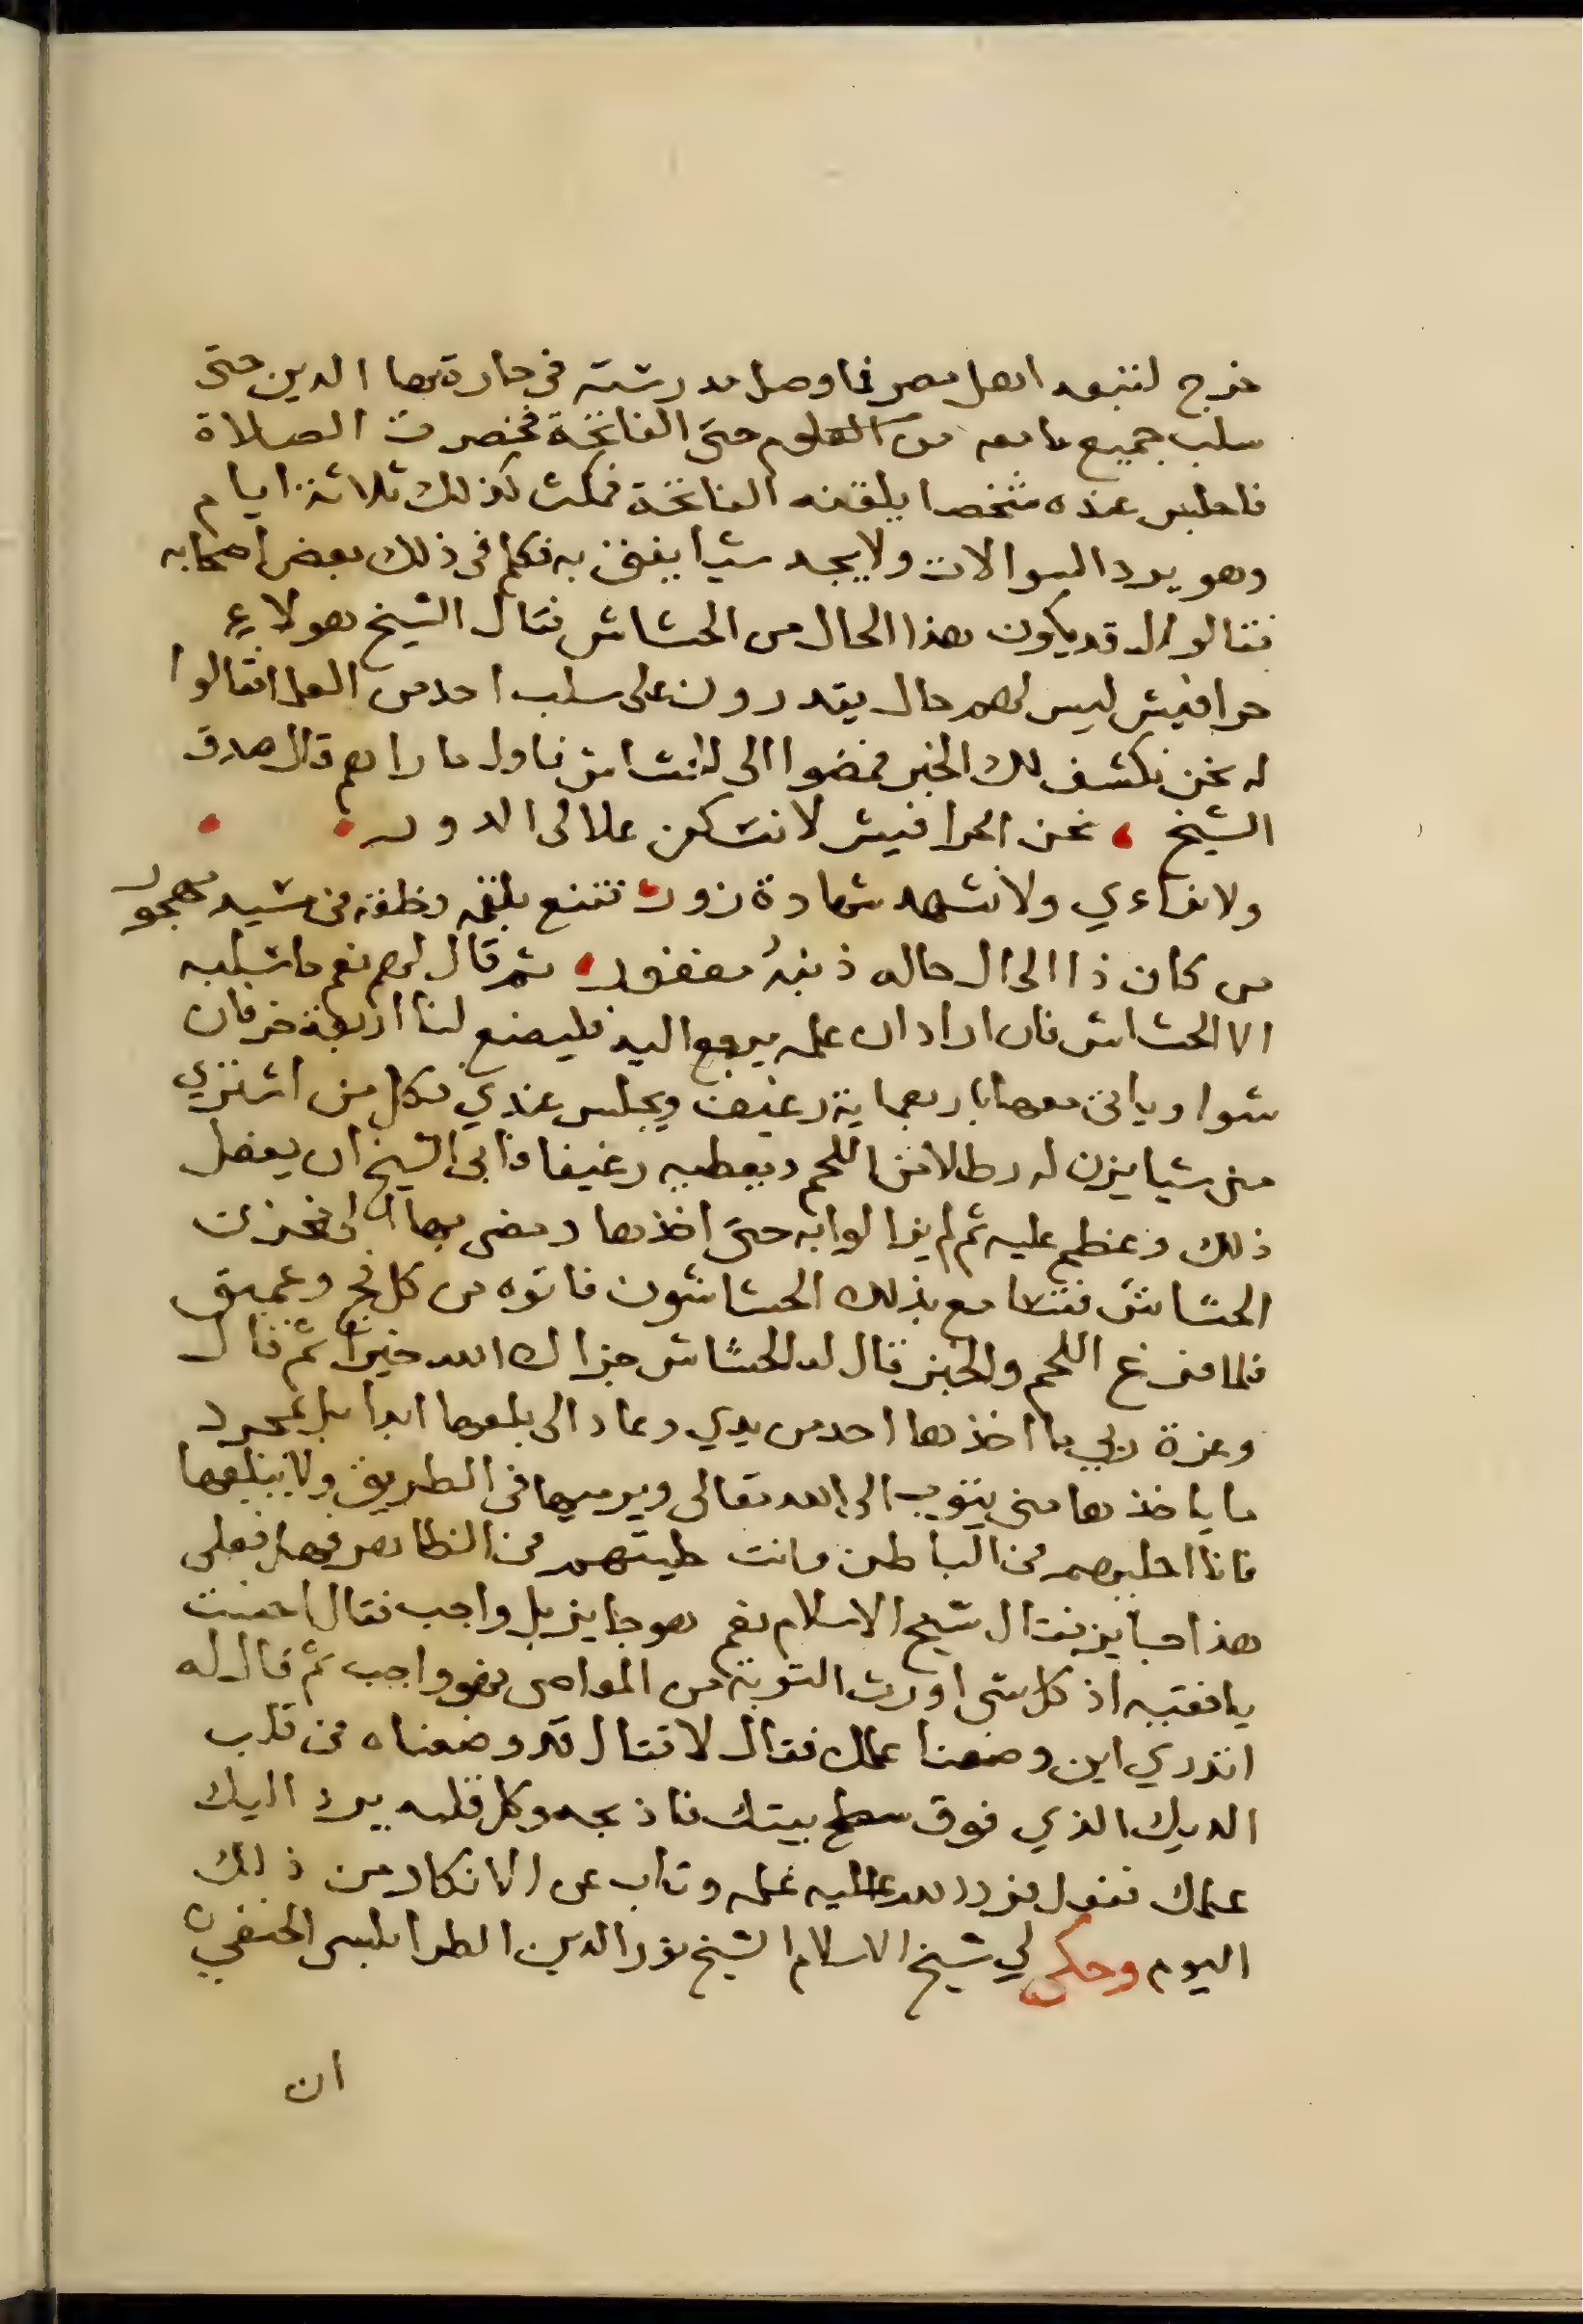 خرج لتنبعه اهل مصر فما وصل مدرسته في حارة بها الدين حتى
سلب جميع ما معه من العلوم حتى الفاتحة فحضرت الصلاة
فاجلس عنده شخصا يلقنه الفاتحة فمكث كذلك ثلاثة ايام
وهو يرد السوالات ولا يجد شيا يفتى به فكلم في ذلك بعض اصحابه
فقالوا له قد يكون هذا الحال من الحشاش فقال الشيخ هولاء
حرافيش ليس لهم حال يقدرون على سلب احد من العلما فقالوا
له نحن نكشف لك الخبر فمضوا الى الحشاش فاول ما راهم قال صدق
الشيخ ، نحن الحرافيش لا نسكن علالى الدور
ولا نراءي ولا نشهد شهادة زور نقنع بلقمه وخلقه في مسيد مهجور
من كان ذا الحال حاله ذنبهُ مغفور ثم قال لهم نعم ما سلبه
الا الحشاش فان اراد ان علمه يرجع اليه فليصنع لنا اربعة خرفان
شوا وياتى معها باربعماية رغيف ويجلس عندي فكل من اشترى
منى شيا يزن له رطلا من اللحم ويعطيه رغيفا فابى الشيخ ان يفعل
ذلك وعظم عليه ثم لم يزالوا به حتى اخذها ومضى بها الى مخزن
الحشاش فتسامع بذلك الحشاشون فاتوه من كل فج وعميق
فلما فرغ اللحم والخبز قال له الحشاش جزاك الله خيرا ثم قال
وعزة ربي ما اخذها احد من يدي وعاد الى بلعها ابدا بل بمجرد
ما ياخذها منى يتوب الى الله تعالى ويرميها في الطريق ولا يبتلعها
فانا احليهم في الباطن وانت طيبتهم في الظاهر فهل فعلى
هذا جايز فقال شيخ الاسلام نعم هو جايز بل واجب فقال احسنت
يا فقيه اذ كل شى اورث التوبة من المعاصى فهو واجب ثم قال له
اتدري اين وضعنا علمك فقال لا فقال قد وضعناه في قلب
الديك الذي فوق سطح بيتك فاذبحه وكل قلبه يرد اليك
علمك ففعل فرد الله عليه علمه وتاب عن الانكار من ذلك
اليوم وحكى لي شيخ الاسلام الشيخ نور الدين الطرابلسى الحنفي
ان